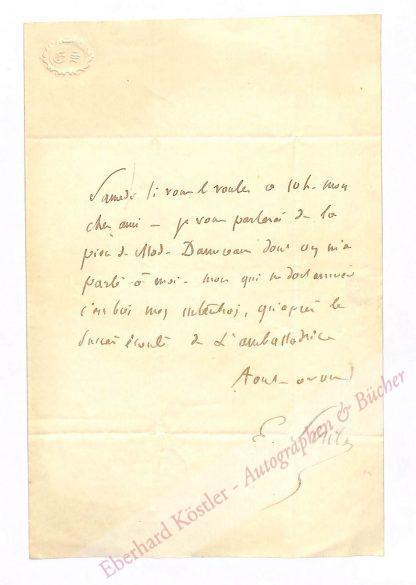 ES
Samedi si vous l voulez a 10 h. mon
cher ami – je vous parlerai de la
pièce de Mad. Damoreau dont on m'a
parlé à moi – mon qui ne doit arriver
mes intentions, qu'après le
succès de L'ambassadrice
Tout à vous
E. Scribe
Eberhard Köstler - Autographen & Bücher